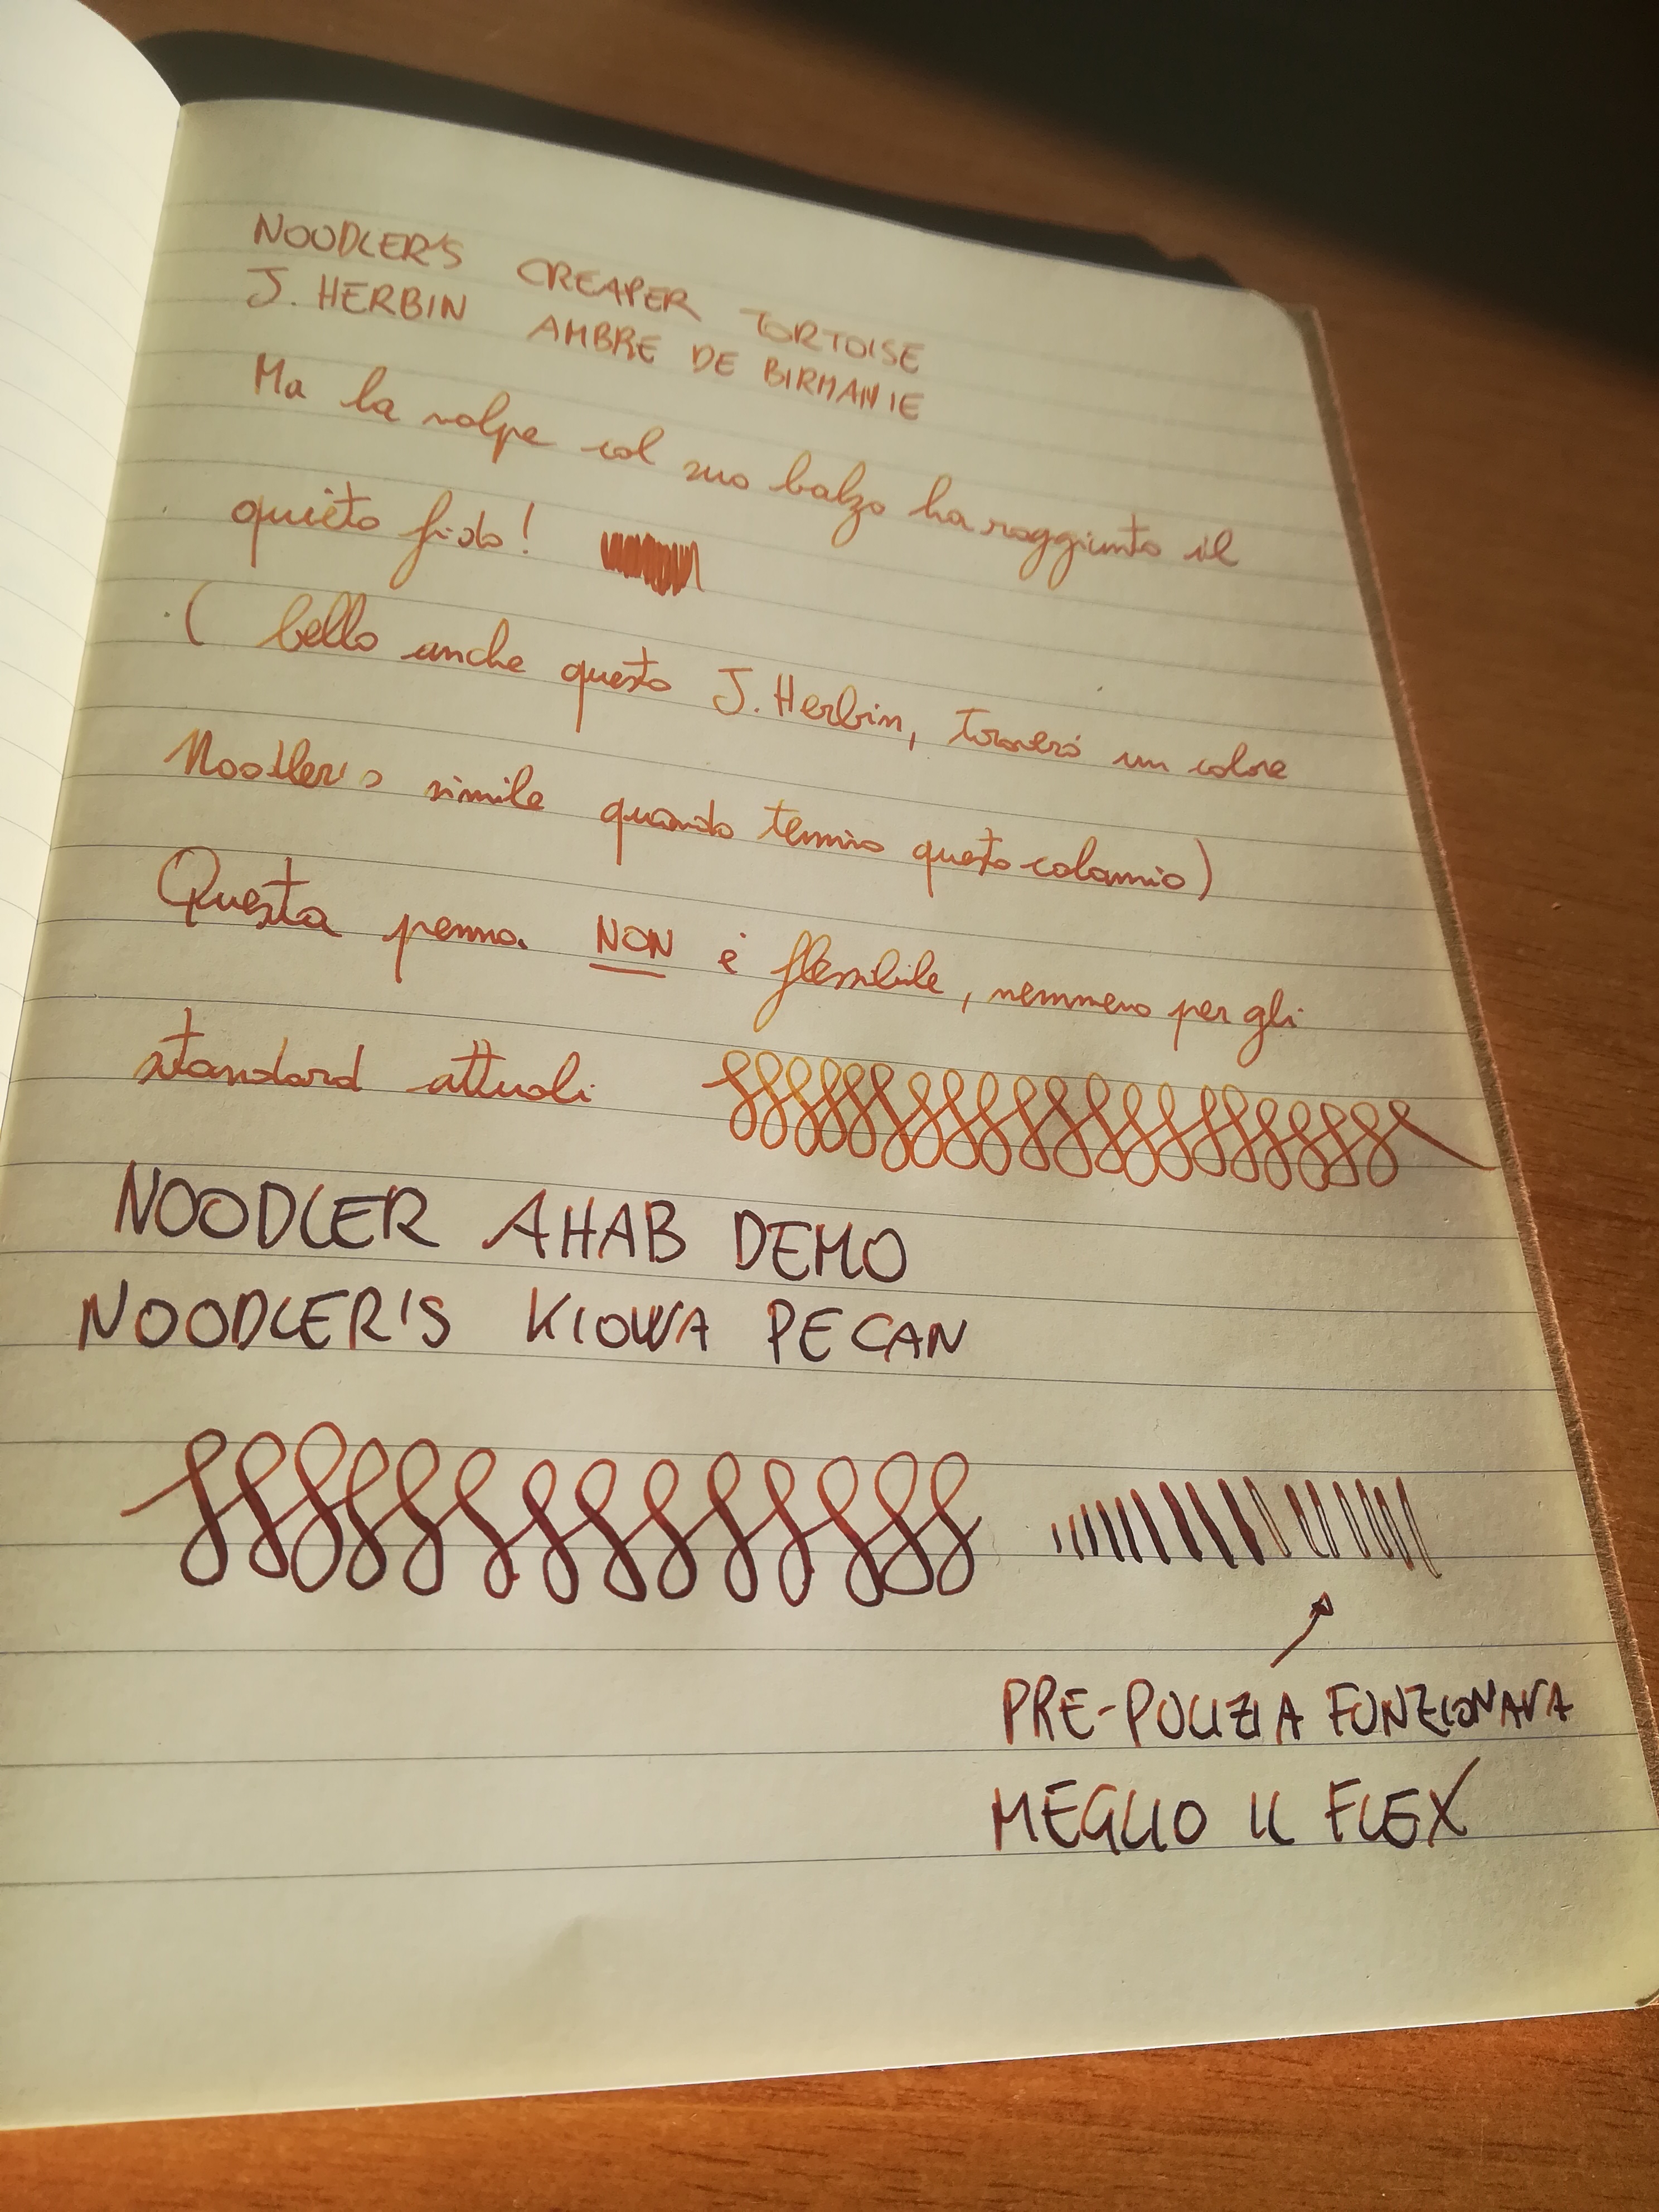 NOODLER'S CREAPER TORTOISE
J. HERBIN AMBRE DE BIRMANIE
Ma la volpe col suo balzo ha raggiunto il
quieto fido!
( bello anche questo J. Herbin, troverò un colore
Noodler's simile quando termino questo calamaio)
Questa penna NON è flessibile, nemmeno per gli
standard attuali
NOODLER AHAB DEMO
NOODLER'S KIOWA PECAN
PRE-PULIZIA FUNZIONAVA
MEGLIO IL FLEX